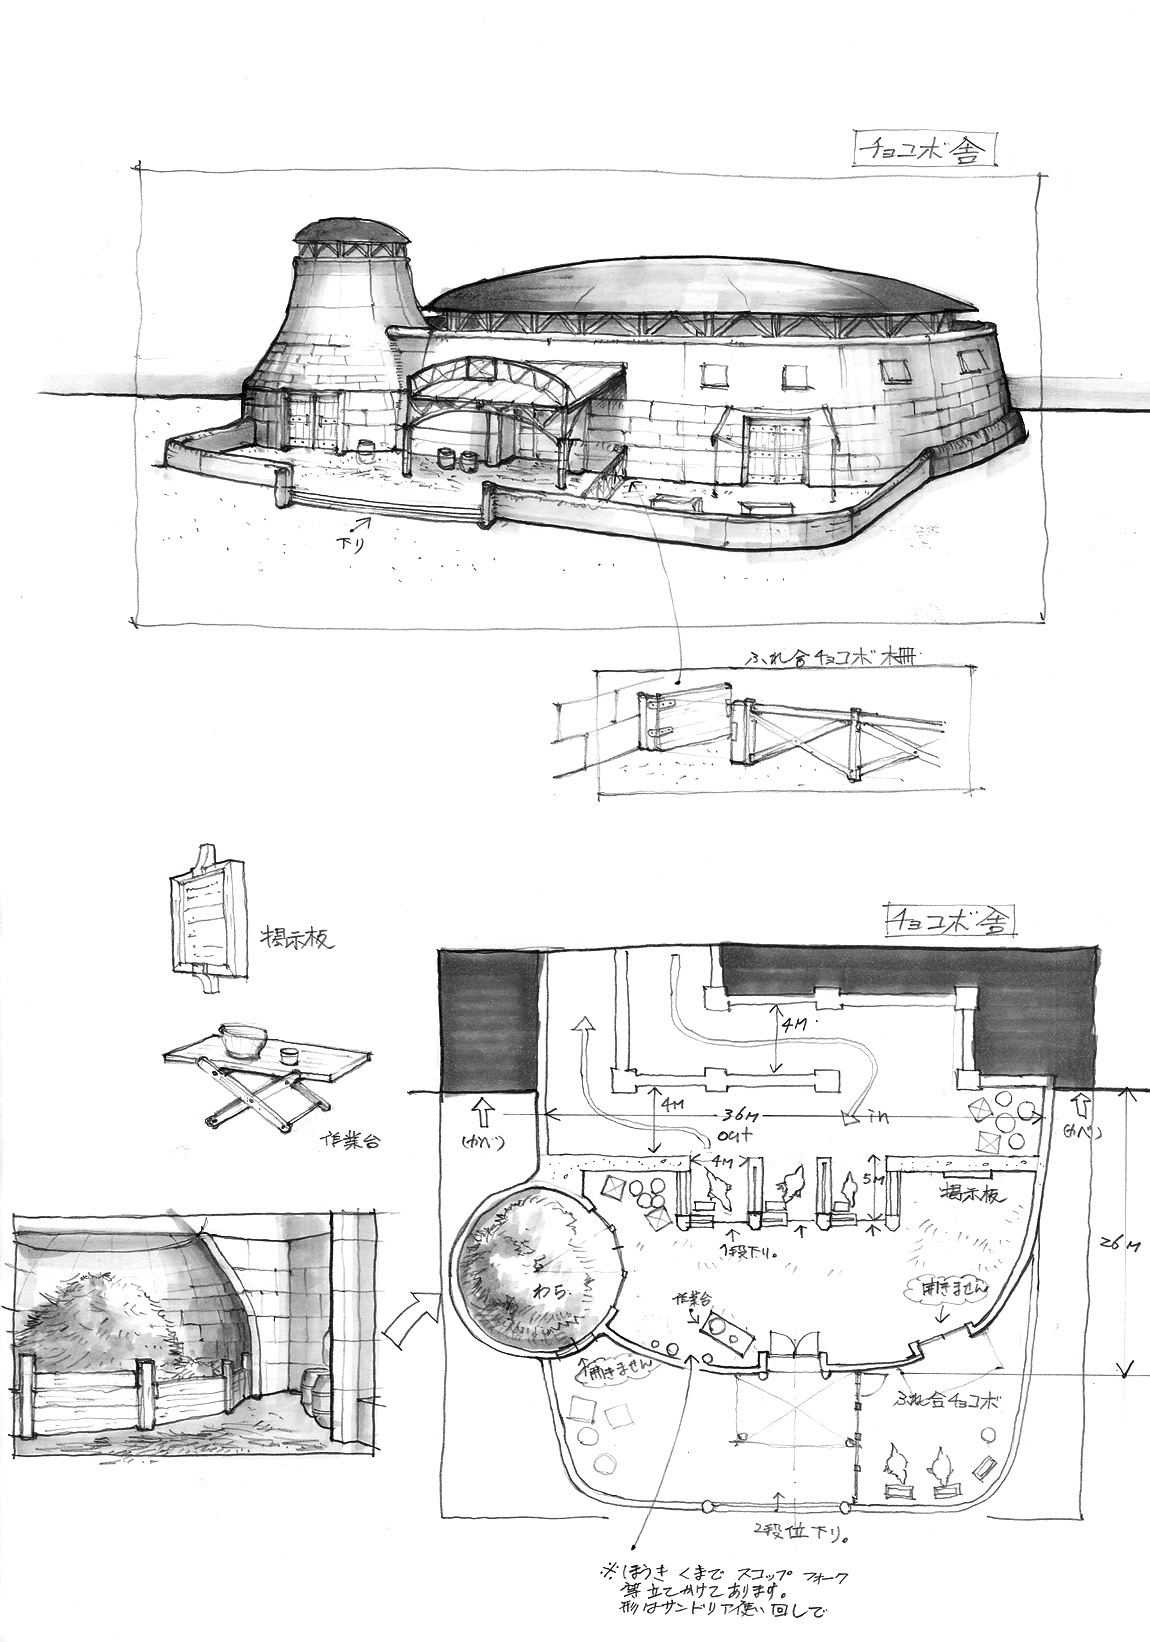 チョコボ舎
下り
ふれ合チョコボ木冊
掲示板
作業台
チョコボ舎
4M
in
4M
36M
out
4M
5M
(カベ)
(カベ)
掲示板
26M
1段下り。
わら
作業台
開きません
開きません
ふれ合チョコボ
2段位下り。
※ほうき くまで スコップ フォーク
等立てかけてあります。
形はサンドリア使い回しで